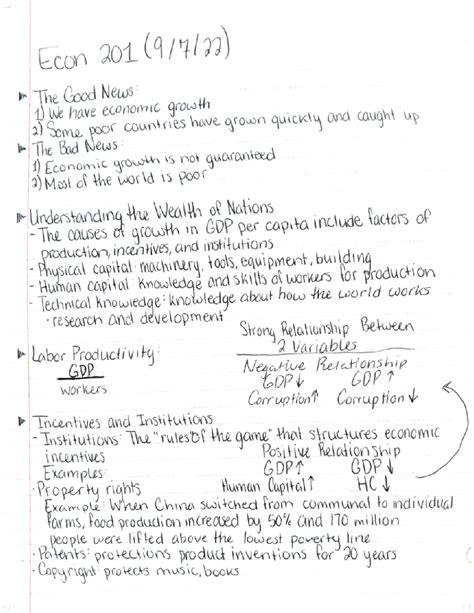 Econ 201 (9/7/22)
The Good News:
1) We have economic growth
2) Some poor countries have grown quickly and caught up
The Bad News:
1) Economic growth is not guaranteed
2) Most of the world is poor
Understanding the Wealth of Nations
- The causes of growth in GDP per capita include factors of
production, incentives, and institutions
- Physical capital: machinery, tools, equipment, building
- Human capital: Knowledge and skills of workers for production
- Technical knowledge: knowledge about how the world works
• research and development
Strong Relationship Between
2 Variables
Labor Productivity:
GDP
workers
Negative Relationship
GDP↓ GDP↑
Corruption↑ Corruption↓
Incentives and Institutions
- Institutions: The "rules of the game" that structures economic
incentives
Positive Relationship
GDP↑ GDP↓
Human Capital↑ HC↓
Examples:
• Property rights
Example: When China switched from communal to individual
farms, food production increased by 50% and 170 million
people were lifted above the lowest poverty line
• Patents: protections product inventions for 20 years
• Copyright protects music, books